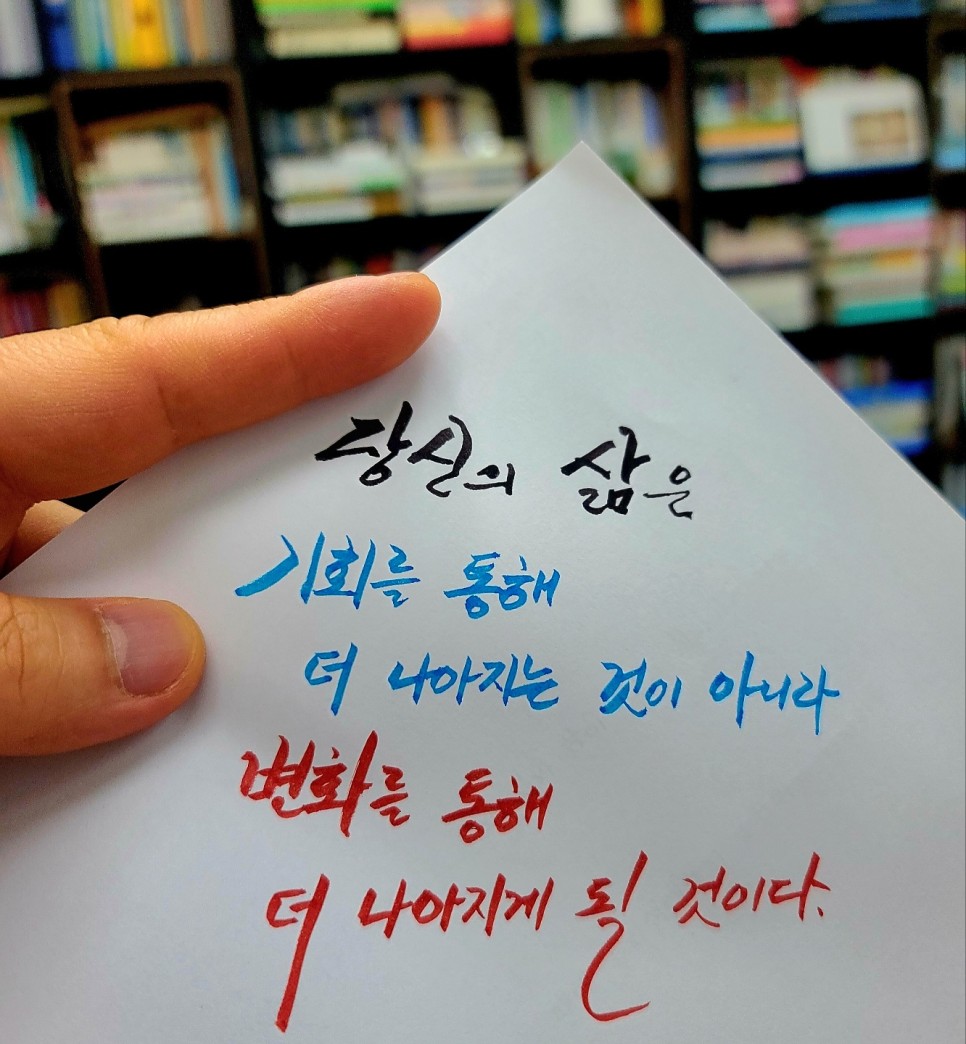 당신의 삶은
기회를 통해
더 나아지는 것이 아니라
변화를 통해
더 나아지게 될 것이다.